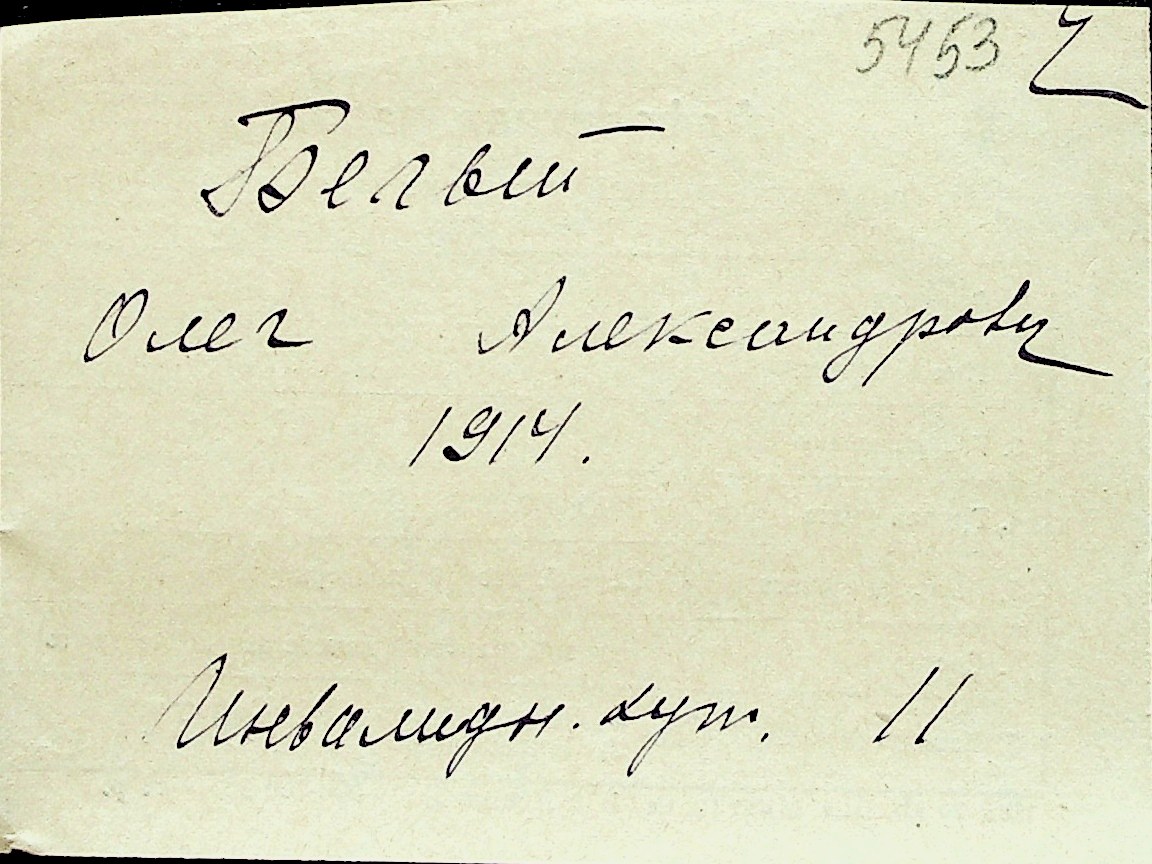 5453
Белый
Олег Александрович
1914.
Инвалидн. хут. 11